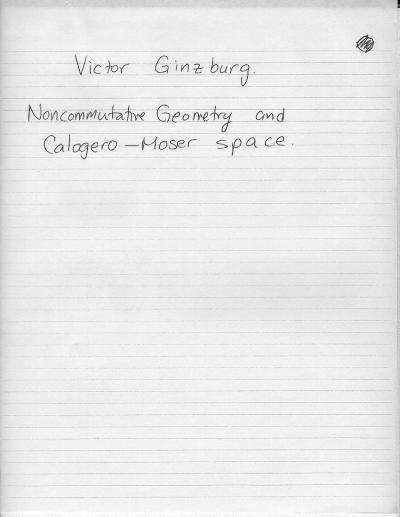 Victor Ginzburg.
Noncommutative Geometry and
Calogero-Moser space.